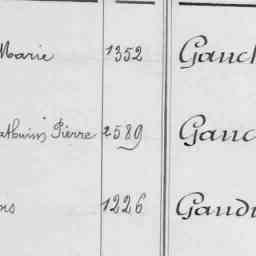 Marie 1352 Gauch
athurin Pierre 2589 Gauc
ns 1226 Gaud